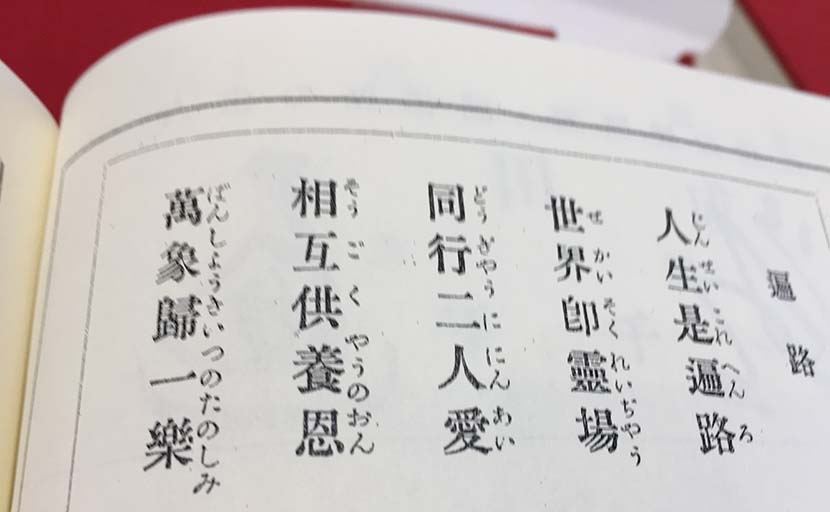 遍路
人生是遍路
じんせいこれへんろ
世界即靈場
せかいそくれいぢやう
同行二人愛
どうぎやうににんあい
相互供養恩
そうごくやうのおん
萬象歸一樂
ばんしようきいつのたのしみ